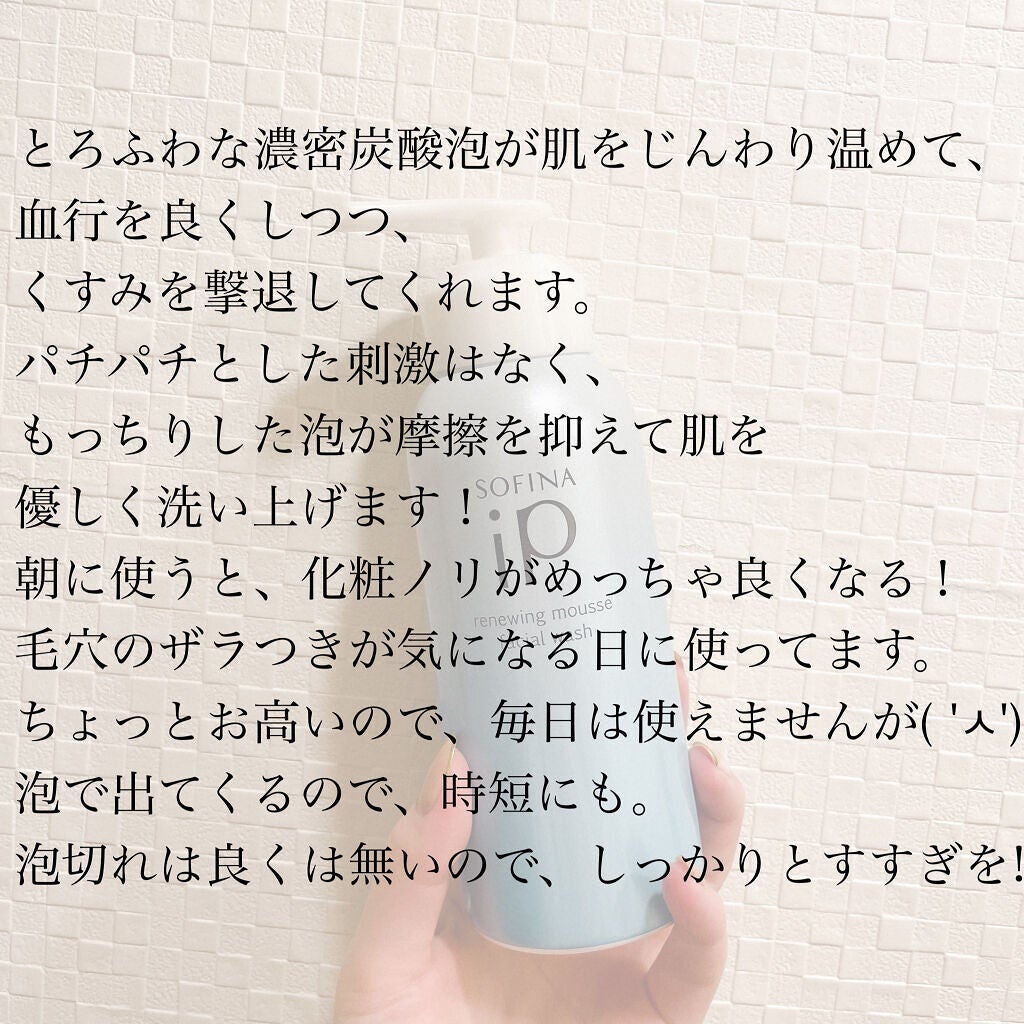 とろふわな濃密炭酸泡が肌をじんわり温めて、
血行を良くしつつ、
くすみを撃退してくれます。
パチパチとした刺激はなく、
もっちりした泡が摩擦を抑えて肌を
優しく洗い上げます！
SOFINA
ip
朝に使うと、化粧ノリがめっちゃ良くなる！
renewing mousse
facial wash
毛穴のザラつきが気になる日に使ってます。
ちょっとお高いので、毎日は使えませんが( 'ㅅ')
泡で出てくるので、時短にも。
泡切れは良くは無いので、しっかりとすすぎを!